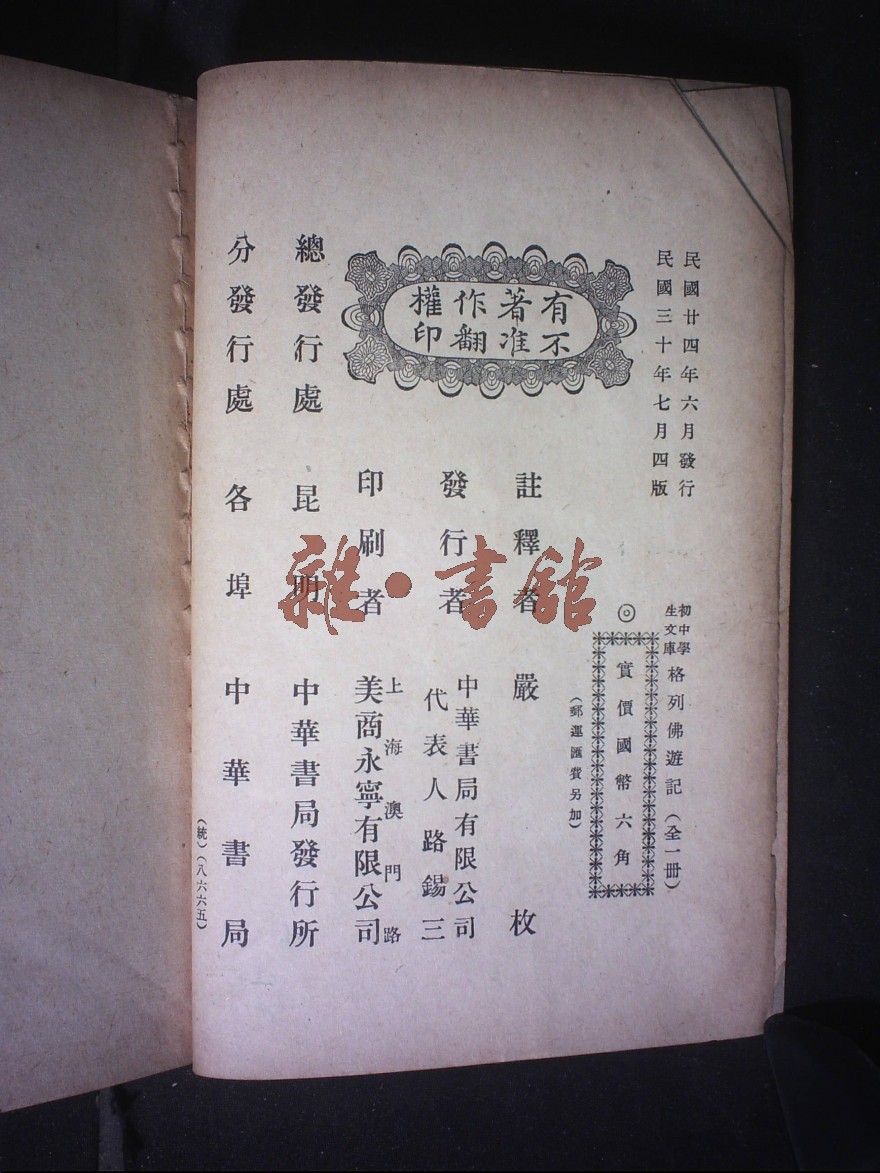 民國廿四年六月發行
民國三十年七月四版
初中學
生文庫
格列佛遊記（全一冊）
◎
實價國幣六角
（郵運匯費另加）
有不
著准
作翻
權印
註釋者 嚴枚
發行者 中華書局有限公司
代表人路錫三
印刷者 上海澳門路
美商永寧有限公司
總發行處 昆明 中華書局發行所
分發行處 各埠 中華書局
（統）（八六六五）
雜·書館